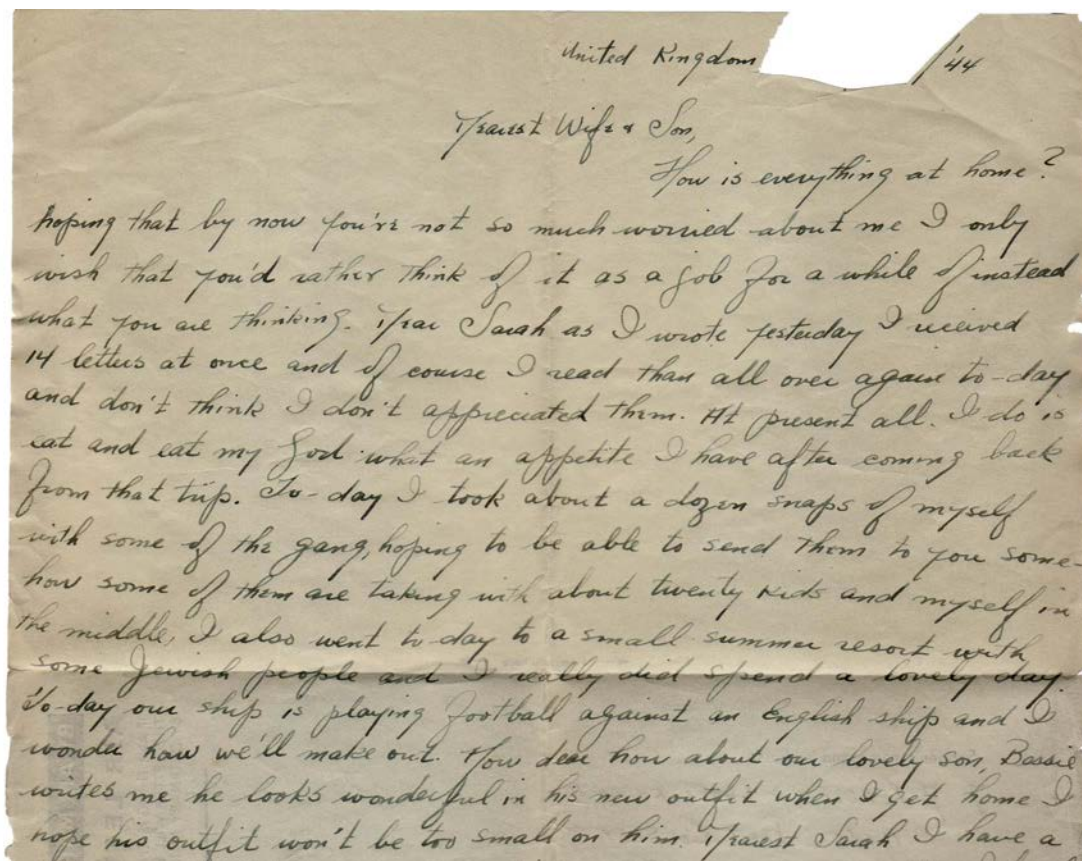 United Kingdom /'44
Dearest Wife & Son,
How is everything at home?
hoping that by now you're not so much worried about me I only
wish that you'd rather think of it as a job for a while of instead
what you are thinking. Dear Sarah as I wrote yesterday I received
14 letters at once and of course I read than all over again to-day
and don't think I don't appreciated them. At present all. I do is
eat and eat my God what an appetite I have after coming back
from that trip. To-day I took about a dozen snaps of myself
with some of the gang, hoping to be able to send them to you some-
how some of them are taking with about twenty kids and myself in
the middle, I also went to-day to a small summer resort with
some Jewish people and I really did spend a lovely day.
To-day our ship is playing football against an English ship and I
wonder how we'll make out. Now dear how about our lovely son, Bessie
writes me he looks wonderful in his new outfit when I get home I
hope his outfit won't be too small on him. Dearest Sarah I have a